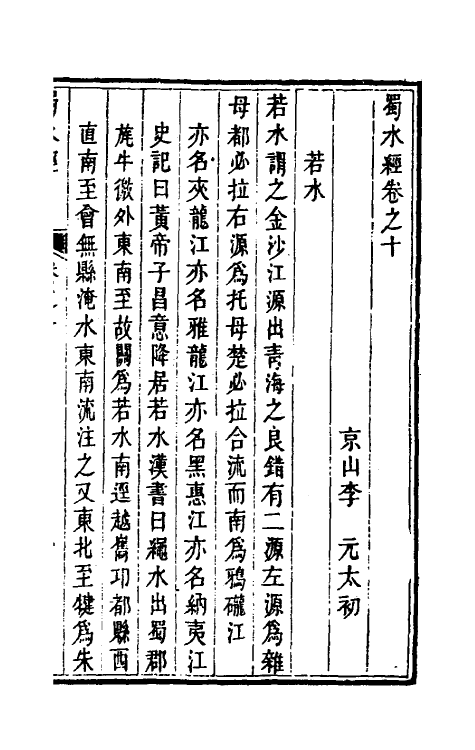 蜀水經卷之十
京山李 元太初
若水
若水謂之金沙江源出青海之良錯有二源左源爲雜
母都必拉右源爲托母楚必拉合流而南爲鴉礲江
亦名夾龍江亦名雅龍江亦名黑惠江亦名納夷江
史記曰黃帝子昌意降居若水漢書曰繩水出蜀郡
旄牛徼外東南至故關爲若水南逕越巂卭都縣西
直南至會無縣淹水東南流注之又東北至犍爲朱
蜀水經